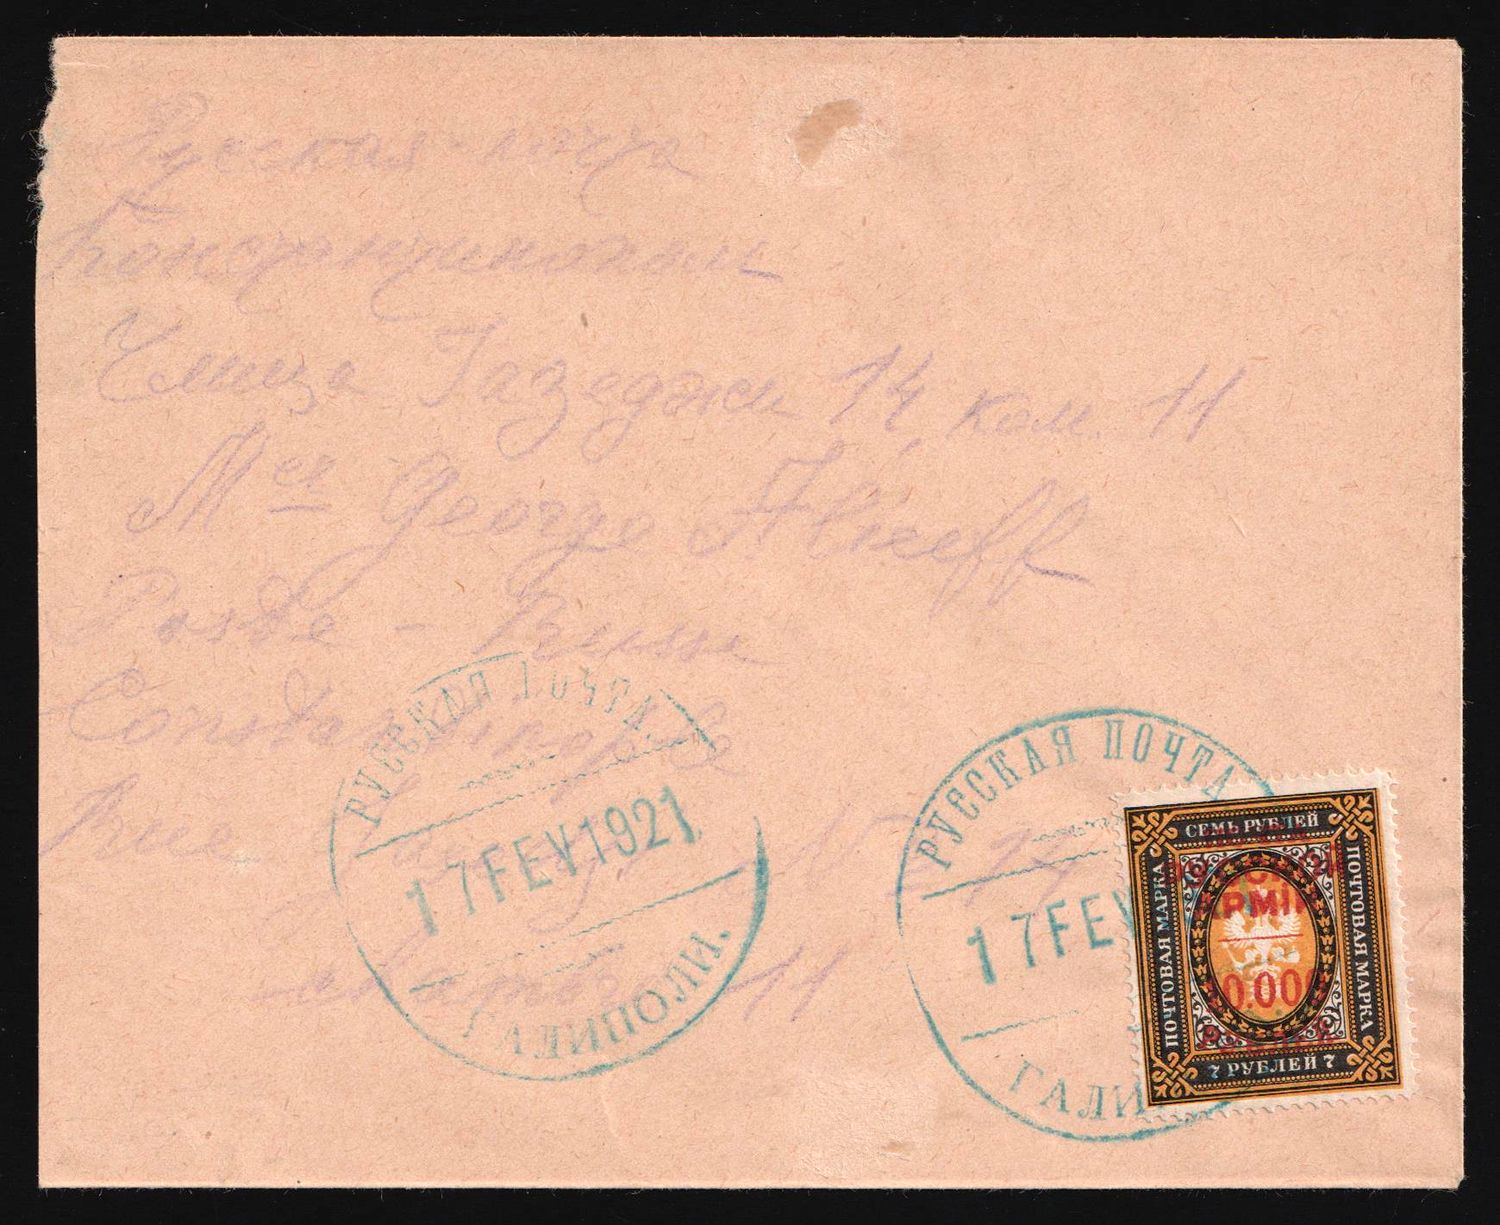 Русская - почта
Константинополь
Улица Газеджи 14 ком. 11
Mr George Alieff
Poste - Russe
Constantinople
Rue
11
РУССКАЯ ПОЧТА.
17FEV1921
ГАЛИПОЛИ.
РУССКАЯ ПОЧТА
17FEV
ГАЛИ
СЕМЬ РУБЛЕЙ
ПОЧТОВАЯ МАРКА
ПОЧТОВАЯ МАРКА
7 РУБЛЕЙ 7